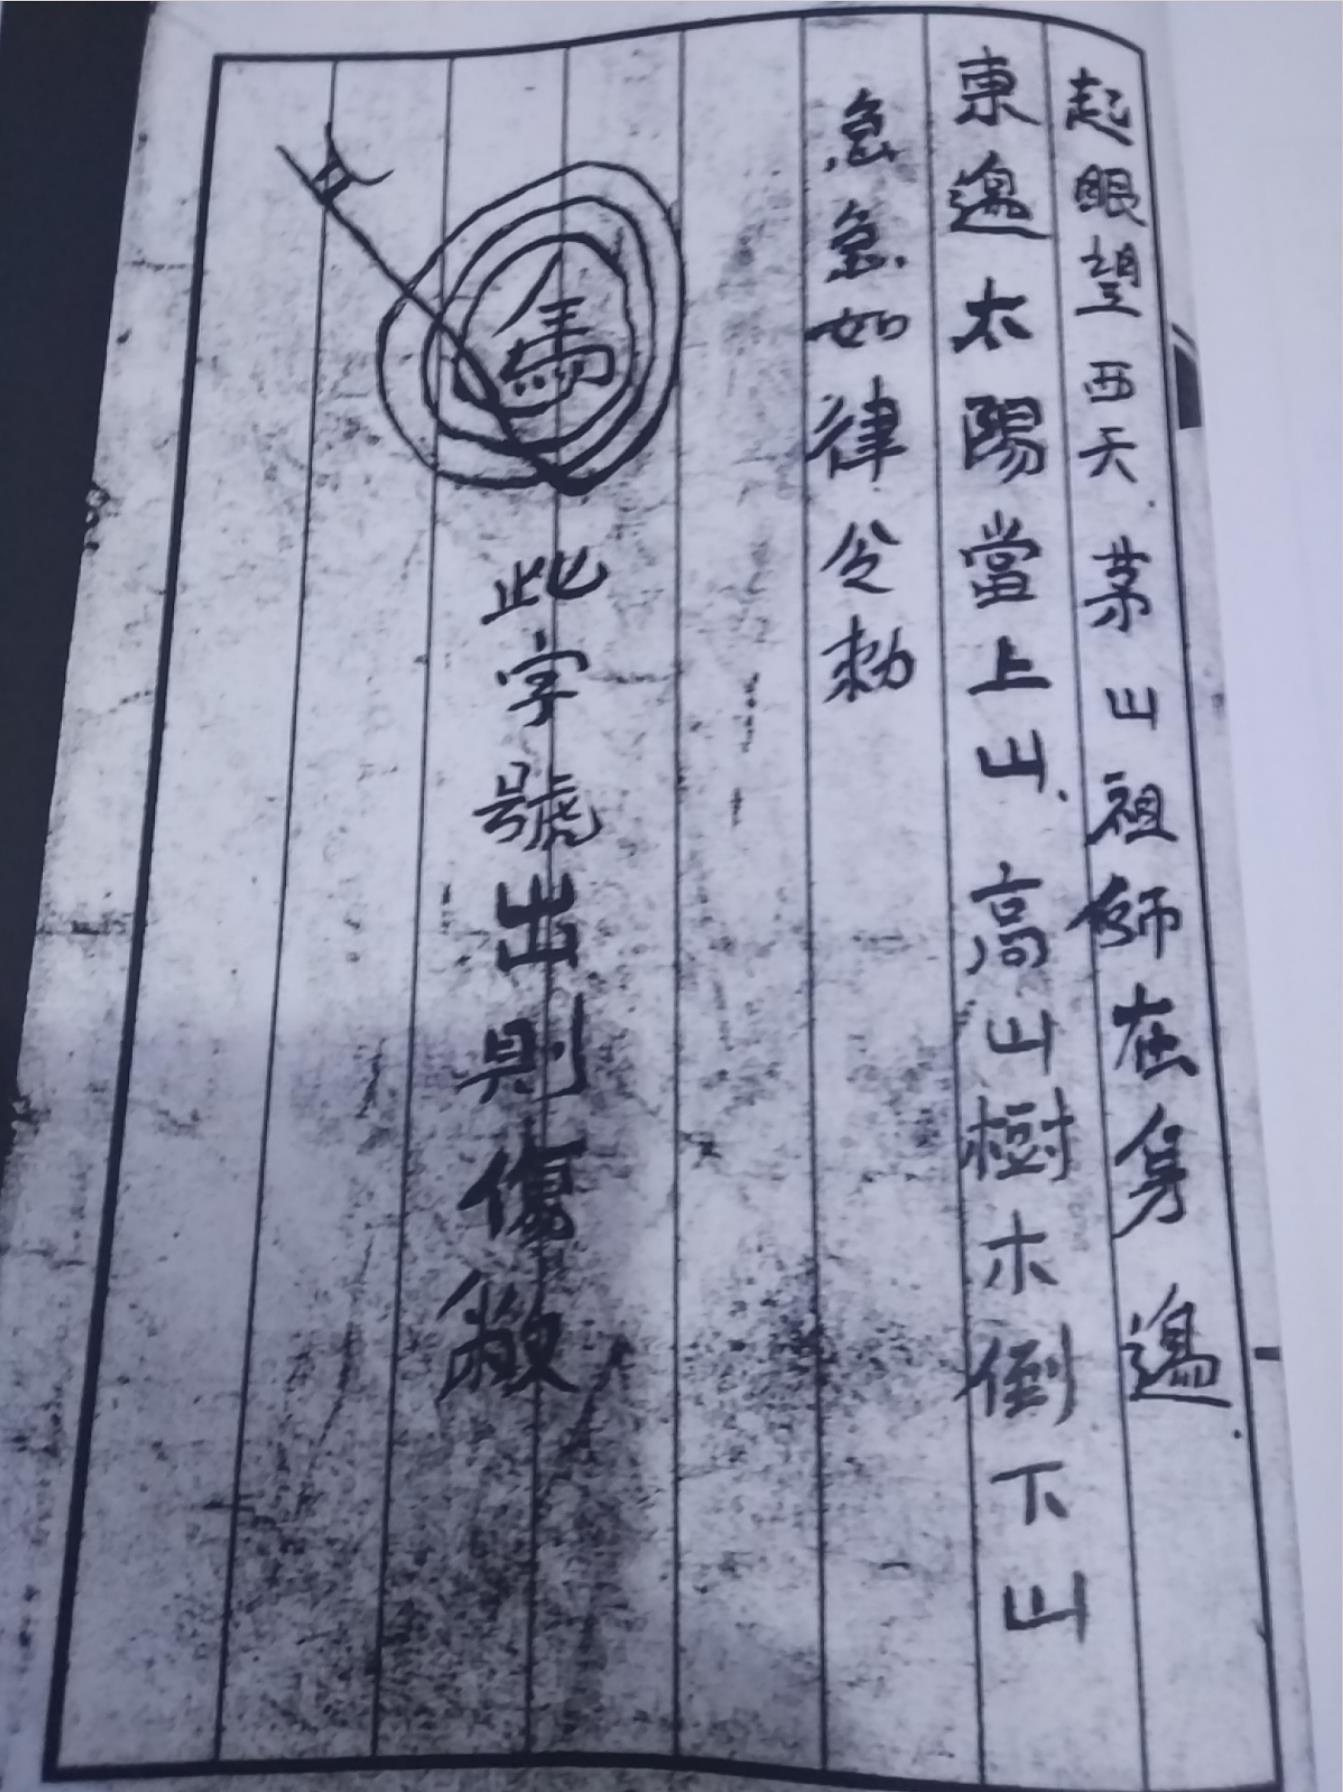 起眼望西天茅山祖師在身邊
東邊太陽當上山高山樹木倒下山
急急如律令勅
此字號出則傷